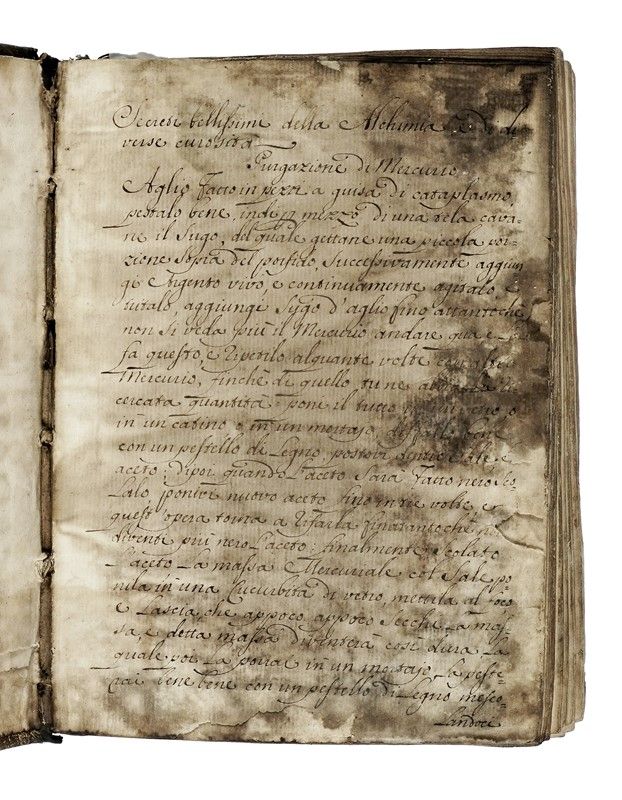 Secreti bellissimi della Alchimia e di di
verse curiosità
Purgazione di Mercurio
Aglio fatto in pezzi a guisa di cataplasmo,
pestalo bene, indi p mezzo di una tela cava-
ne il Sugo, del quale gettane una piccola por-
zione sopra del porfido, Successivamente aggiun
gi Argento vivo, e continuamente agitalo, e
tritalo, aggiungi Sugo d'aglio fino attantoché
non si veda più il Mercurio andare qua e
fa questo, e ripetilo alquante volte con altro
Mercurio, finchè di quello tu ne
cercata quantità poni il tutto o
in un catino o in un mortajo, bene
con un pestello di Legno, postovi dentro Sale e
aceto: dipoi quando l'aceto Sarà fatto nero Sco-
lalo, ponivi nuovo aceto fino in tre volte, e
quest'opera torna a rifarla finatantoché non
divente più nero l'aceto: finalmente Scolato
l'aceto La massa Mercuriale col Sale po-
nila in una Cucurbita di vetro, mettila al foco
e Lascia, che appoco appoco Secchi La mas-
sa, e detta massa diventerà così dura La
quale poi La porrai in un mortajo, La peste-
rai bene bene con un pestello di Legno mesco-
Landoci